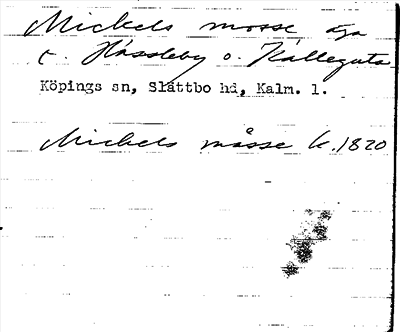 Mickels mosse äga
t. Hässleby o. Kalleguta
Köpings sn, Slättbo hd, Kalm. l.
Mickels måsse k. 1820